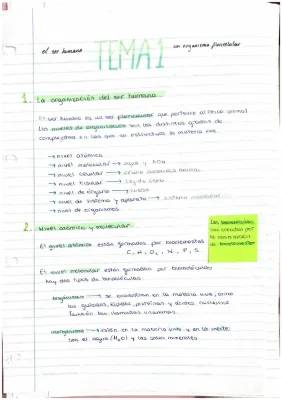 el ser humano TEMA 1 un organismo pluricelular
1. La organización del ser humano
El ser humano es un ser pluricelular que pertenece al reino animal
Los niveles de organización son los distintos grados de
complejidad en los que se estructura la materia viva.
→ nivel atómico
→ nivel molecular → agua y ADN
→ nivel celular →
→ nivel tisular →
→ nivel de órgano →
→ nivel de sistema y aparato →
→ nivel de organismos
2. Nivel atómico y molecular
El nivel atómico están formados por bioelementos
C, H, O, N, P, S
Los bioelementos
son
por
la
de
El nivel molecular están formados por biomoléculas
hay dos tipos de biomoléculas
orgánicas → se encuentran en la materia viva, como
los glúcidos, lípidos, proteínas y ácidos nucleicos
también los llamados vitaminas.
inorgánicas → están en la materia viva y en la inerte
con el agua (H₂O) y las sales minerales.